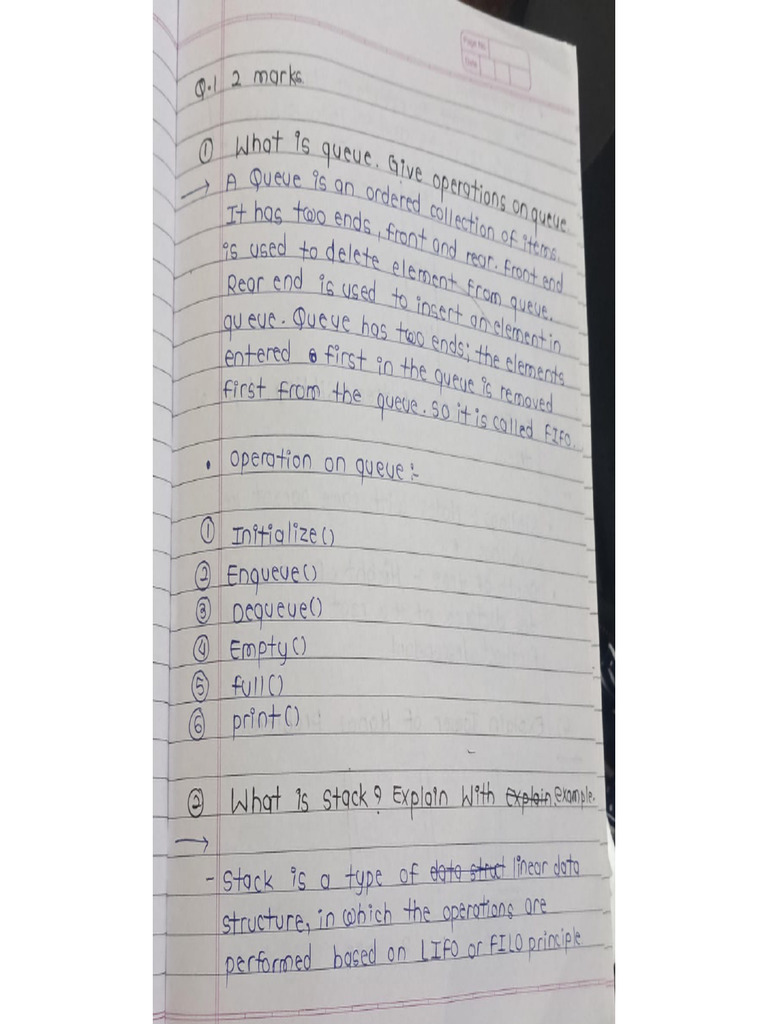 Page No
Date
Q.1 2 marks.
① What is queue. Give operations on queue.
→ A Queue is an ordered collection of items.
It has two ends, front and rear. Front end
is used to delete element from queue.
Rear end is used to insert an element in
queue. Queue has two ends; the elements
entered first in the queue is removed
first from the queue. So it is called FIFO.
• Operation on queue :-
① Initialize()
② Enqueue()
③ Dequeue()
④ Empty()
⑤ full()
⑥ print()
② What is stack? Explain With explain example.
→
- Stack is a type of data struct linear data
structure, in which the operations are
performed based on LIFO or FILO principle